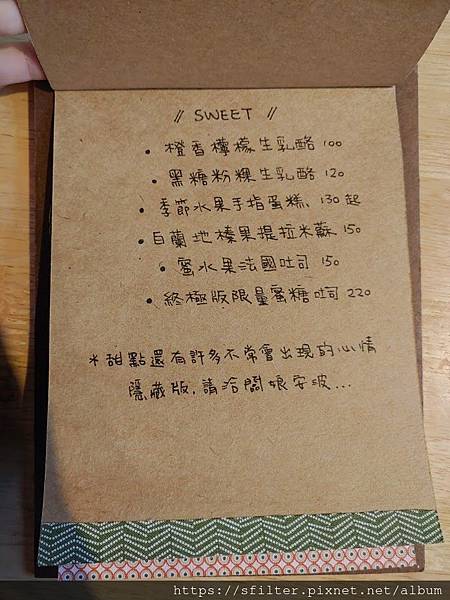 // SWEET //
• 橙香檸檬生乳酪 100
• 黑糖粉粿生乳酪 120
• 季節水果手指蛋糕、130起
• 白蘭地榛果提拉米蘇 150
• 蜜水果法國吐司 150
• 終極版限量蜜糖吐司 220
＊甜點還有許多不常會出現的心情
隱藏版,請洽闆娘安坡...
https://sfilter.pixnet.net/album